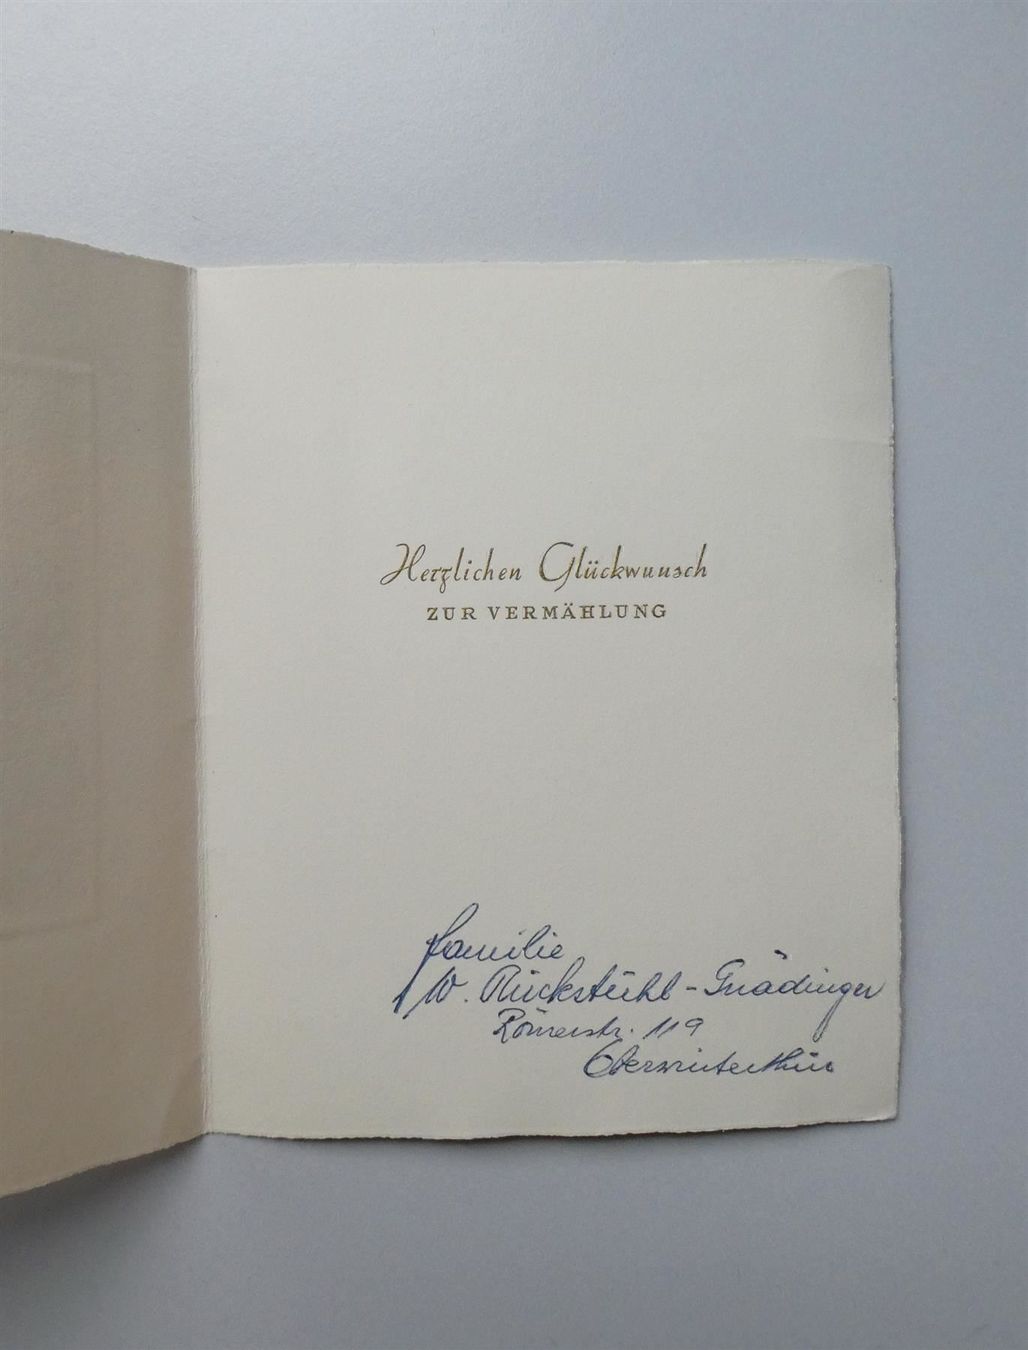 Herzlichen Glückwunsch
ZUR VERMÄHLUNG
Familie
W. Rückstühl - Gnädinger
Römerstr. 119
Oberwinterthur